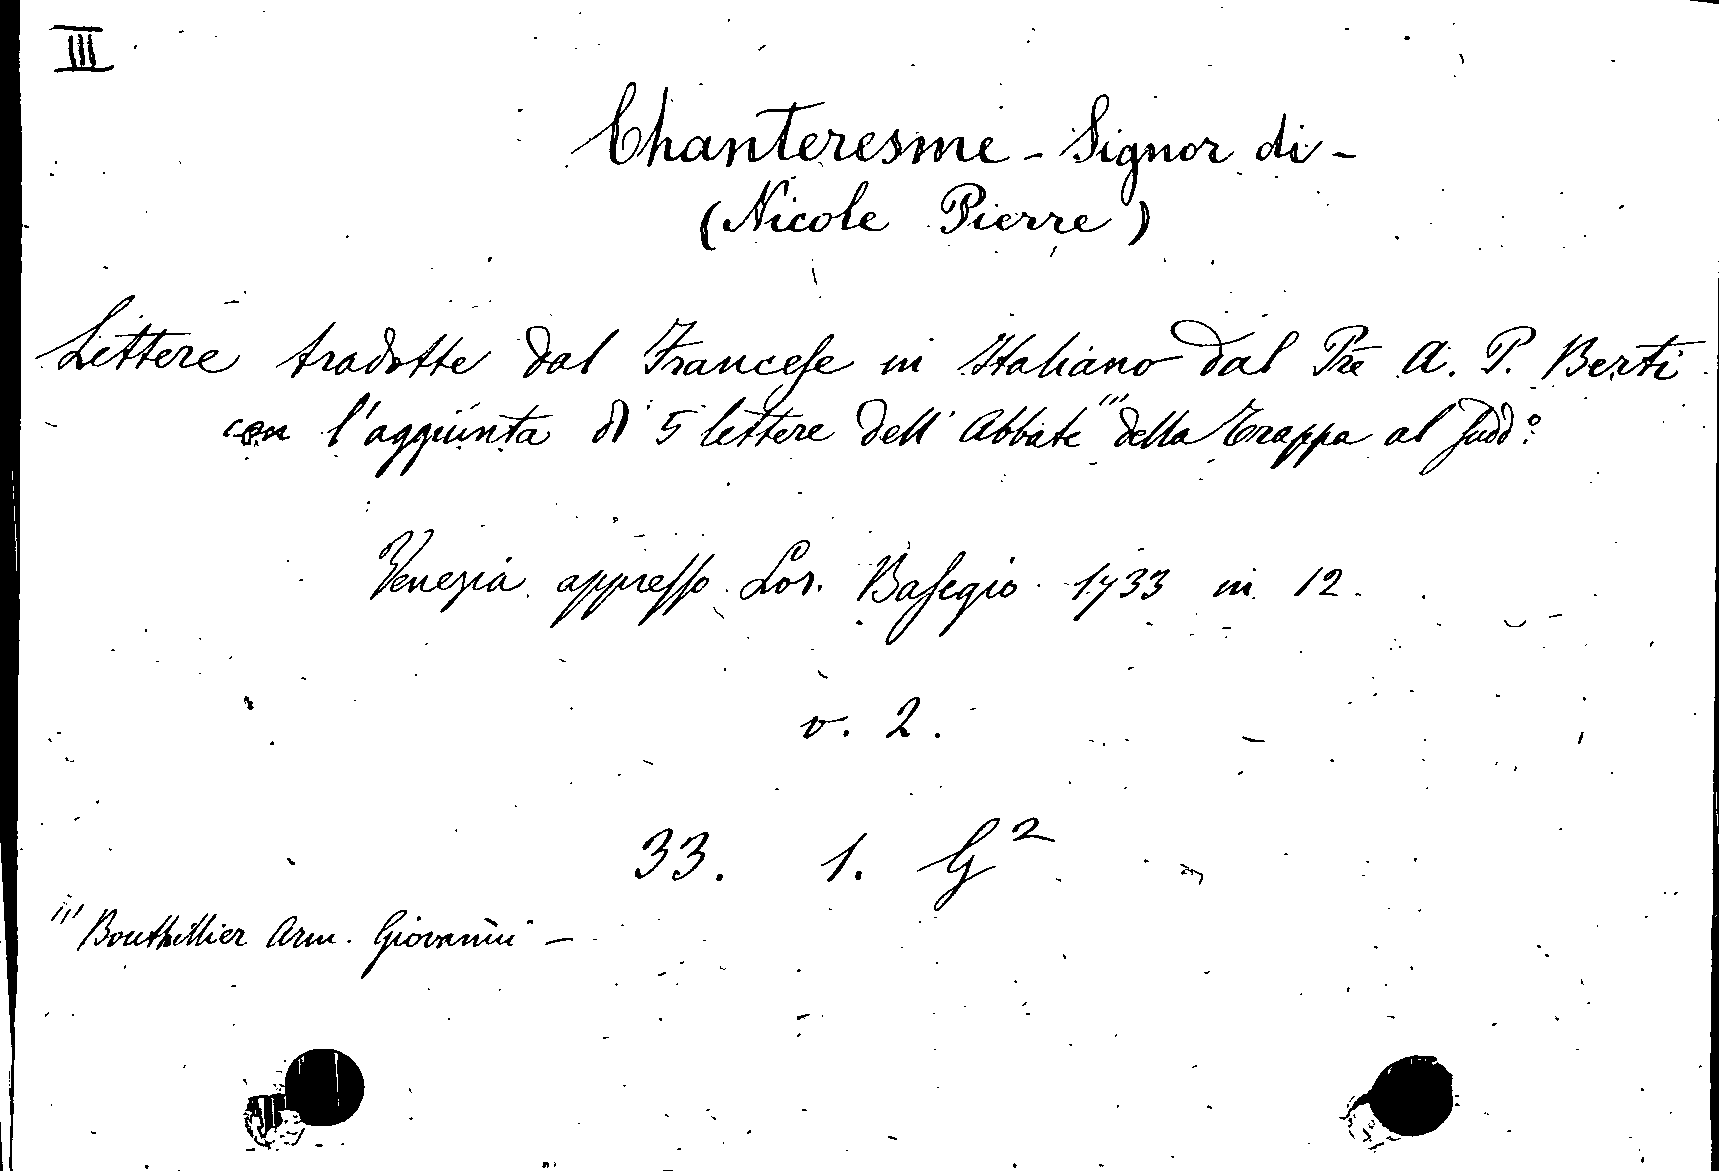 III
Chanteresme - Signor di -
(Nicole Pierre)
Lettere tradotte dal Francese in Italiano dal Pre A. P. Berti
con l'aggiunta di 5 lettere dell' Abbate (1) della Trappa al sudd.º
Venezia appresso Lor. Basegio 1733 in 12.
v. 2.
33. 1. G²
(1) Bouthillier Arm. Giovanni -